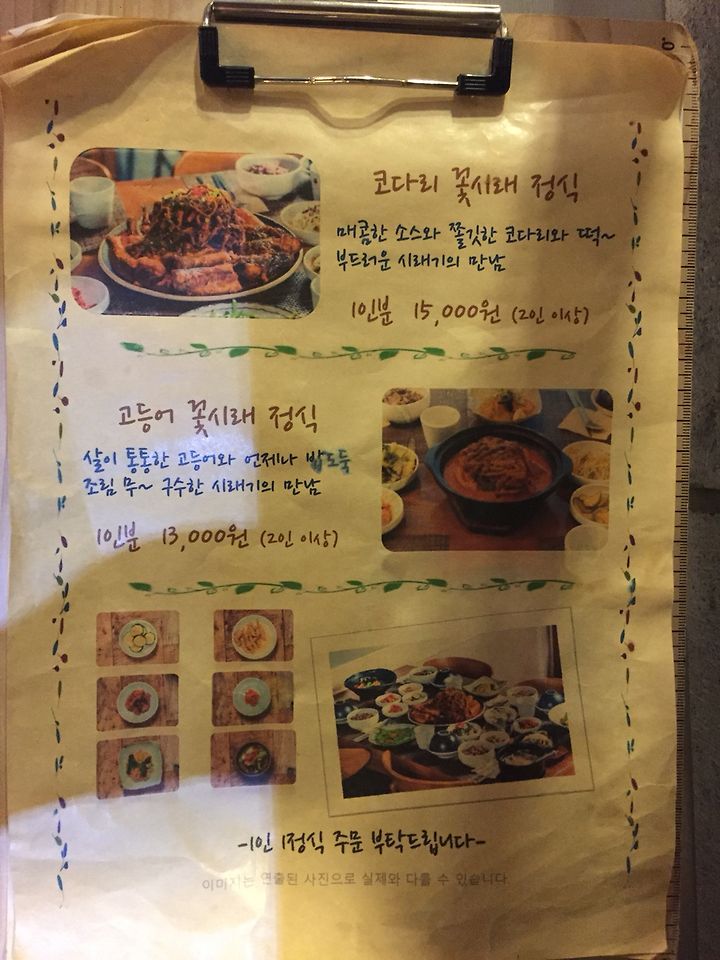 코다리 꽃시래 정식
매콤한 소스와 쫄깃한 코다리와 떡~
부드러운 시래기의 만남
1인분 15,000원 (2인 이상)
고등어 꽃시래 정식
살이 통통한 고등어와 언제나 밥도둑
조림 무~ 구수한 시래기의 만남
1인분 13,000원 (2인 이상)
-1인 1정식 주문 부탁드립니다-
이미지는 연출된 사진으로 실제와 다를 수 있습니다.